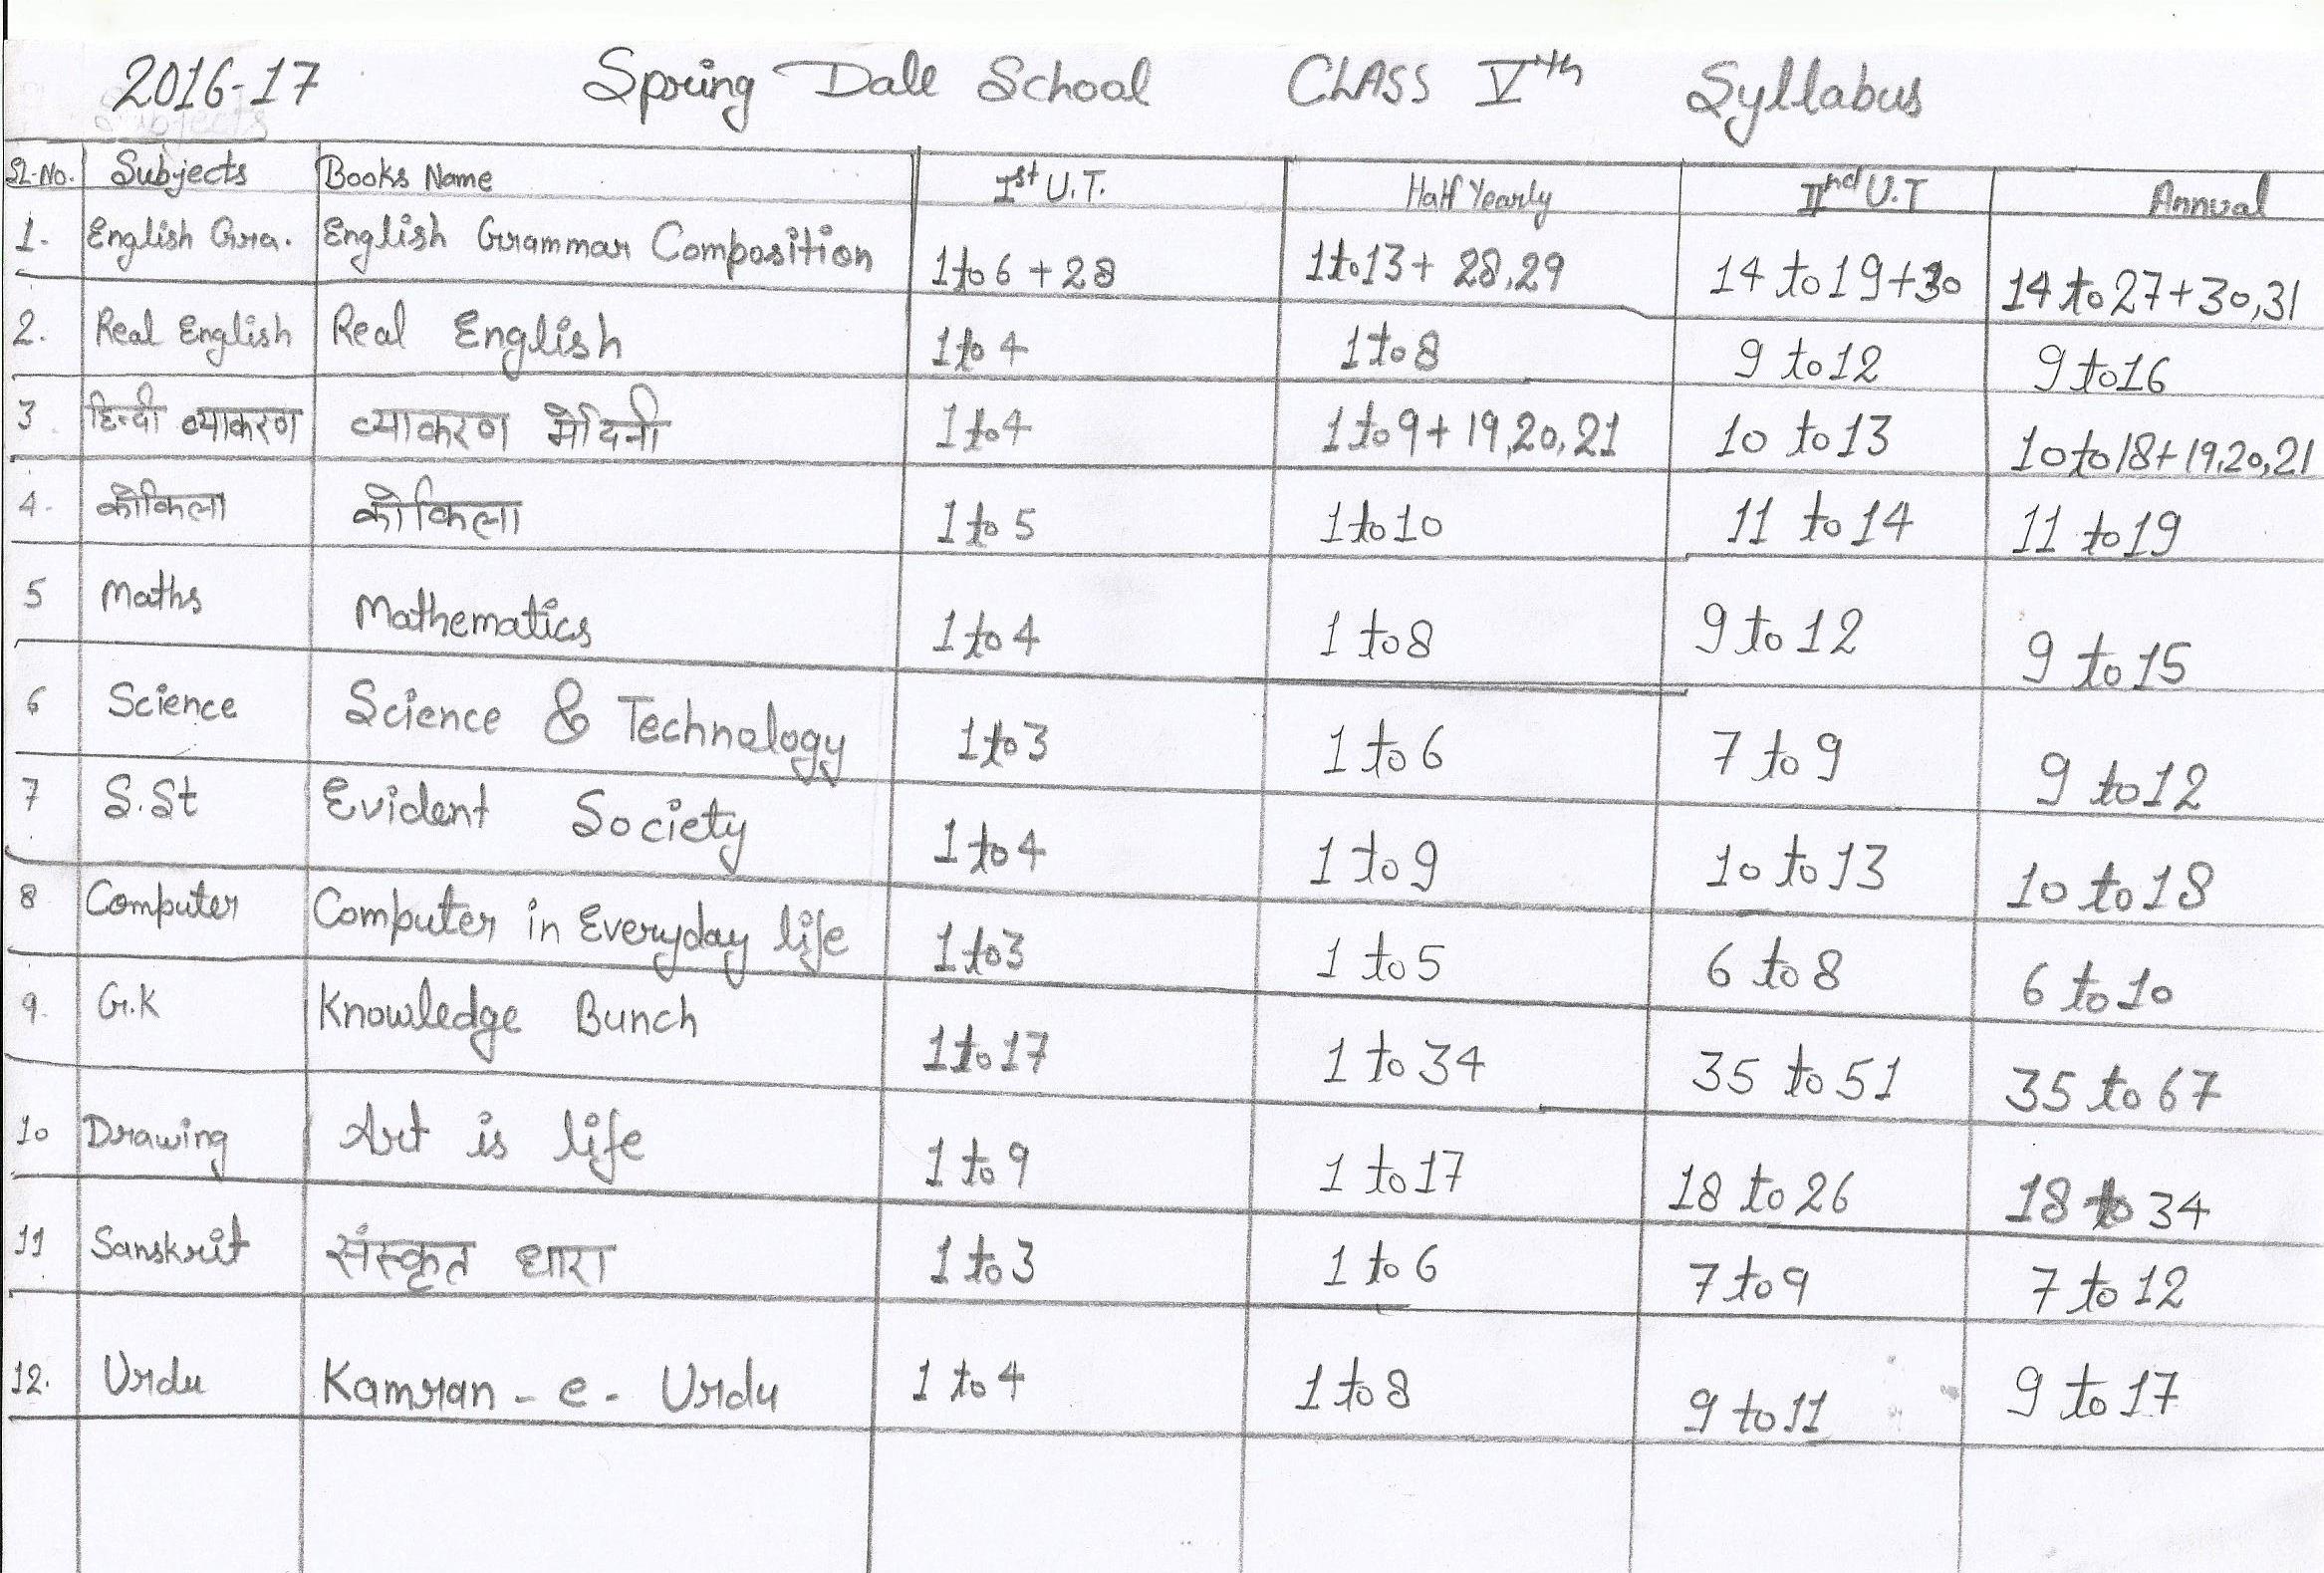 2016-17 Spring Dale School CLASS Vth Syllabus
Sl.No. Subjects Books Name Ist U.T. Half Yearly IInd U.T Annual
1. English Gra. English Grammar Composition 1 to 6 + 28 1 to 13 + 28,29 14 to 19 + 30 14 to 27 + 30,31
2. Real English Real English 1 to 4 1 to 8 9 to 12 9 to 16
3 हिन्दी व्याकरण व्याकरण मेदिनी 1 to 4 1 to 9 + 19,20,21 10 to 13 10 to 18 + 19,20,21
4. कोकिला कोकिला 1 to 5 1 to 10 11 to 14 11 to 19
5 Maths Mathematics 1 to 4 1 to 8 9 to 12 9 to 15
6 Science Science & Technology 1 to 3 1 to 6 7 to 9 9 to 12
7 S.St Evident Society 1 to 4 1 to 9 10 to 13 10 to 18
8 Computer Computer in Everyday life 1 to 3 1 to 5 6 to 8 6 to 10
9. G.K Knowledge Bunch 1 to 17 1 to 34 35 to 51 35 to 67
10 Drawing Art is life 1 to 9 1 to 17 18 to 26 18 to 34
11 Sanskrit संस्कृत धारा 1 to 3 1 to 6 7 to 9 7 to 12
12. Urdu Kamran - e - Urdu 1 to 4 1 to 8 9 to 11 9 to 17